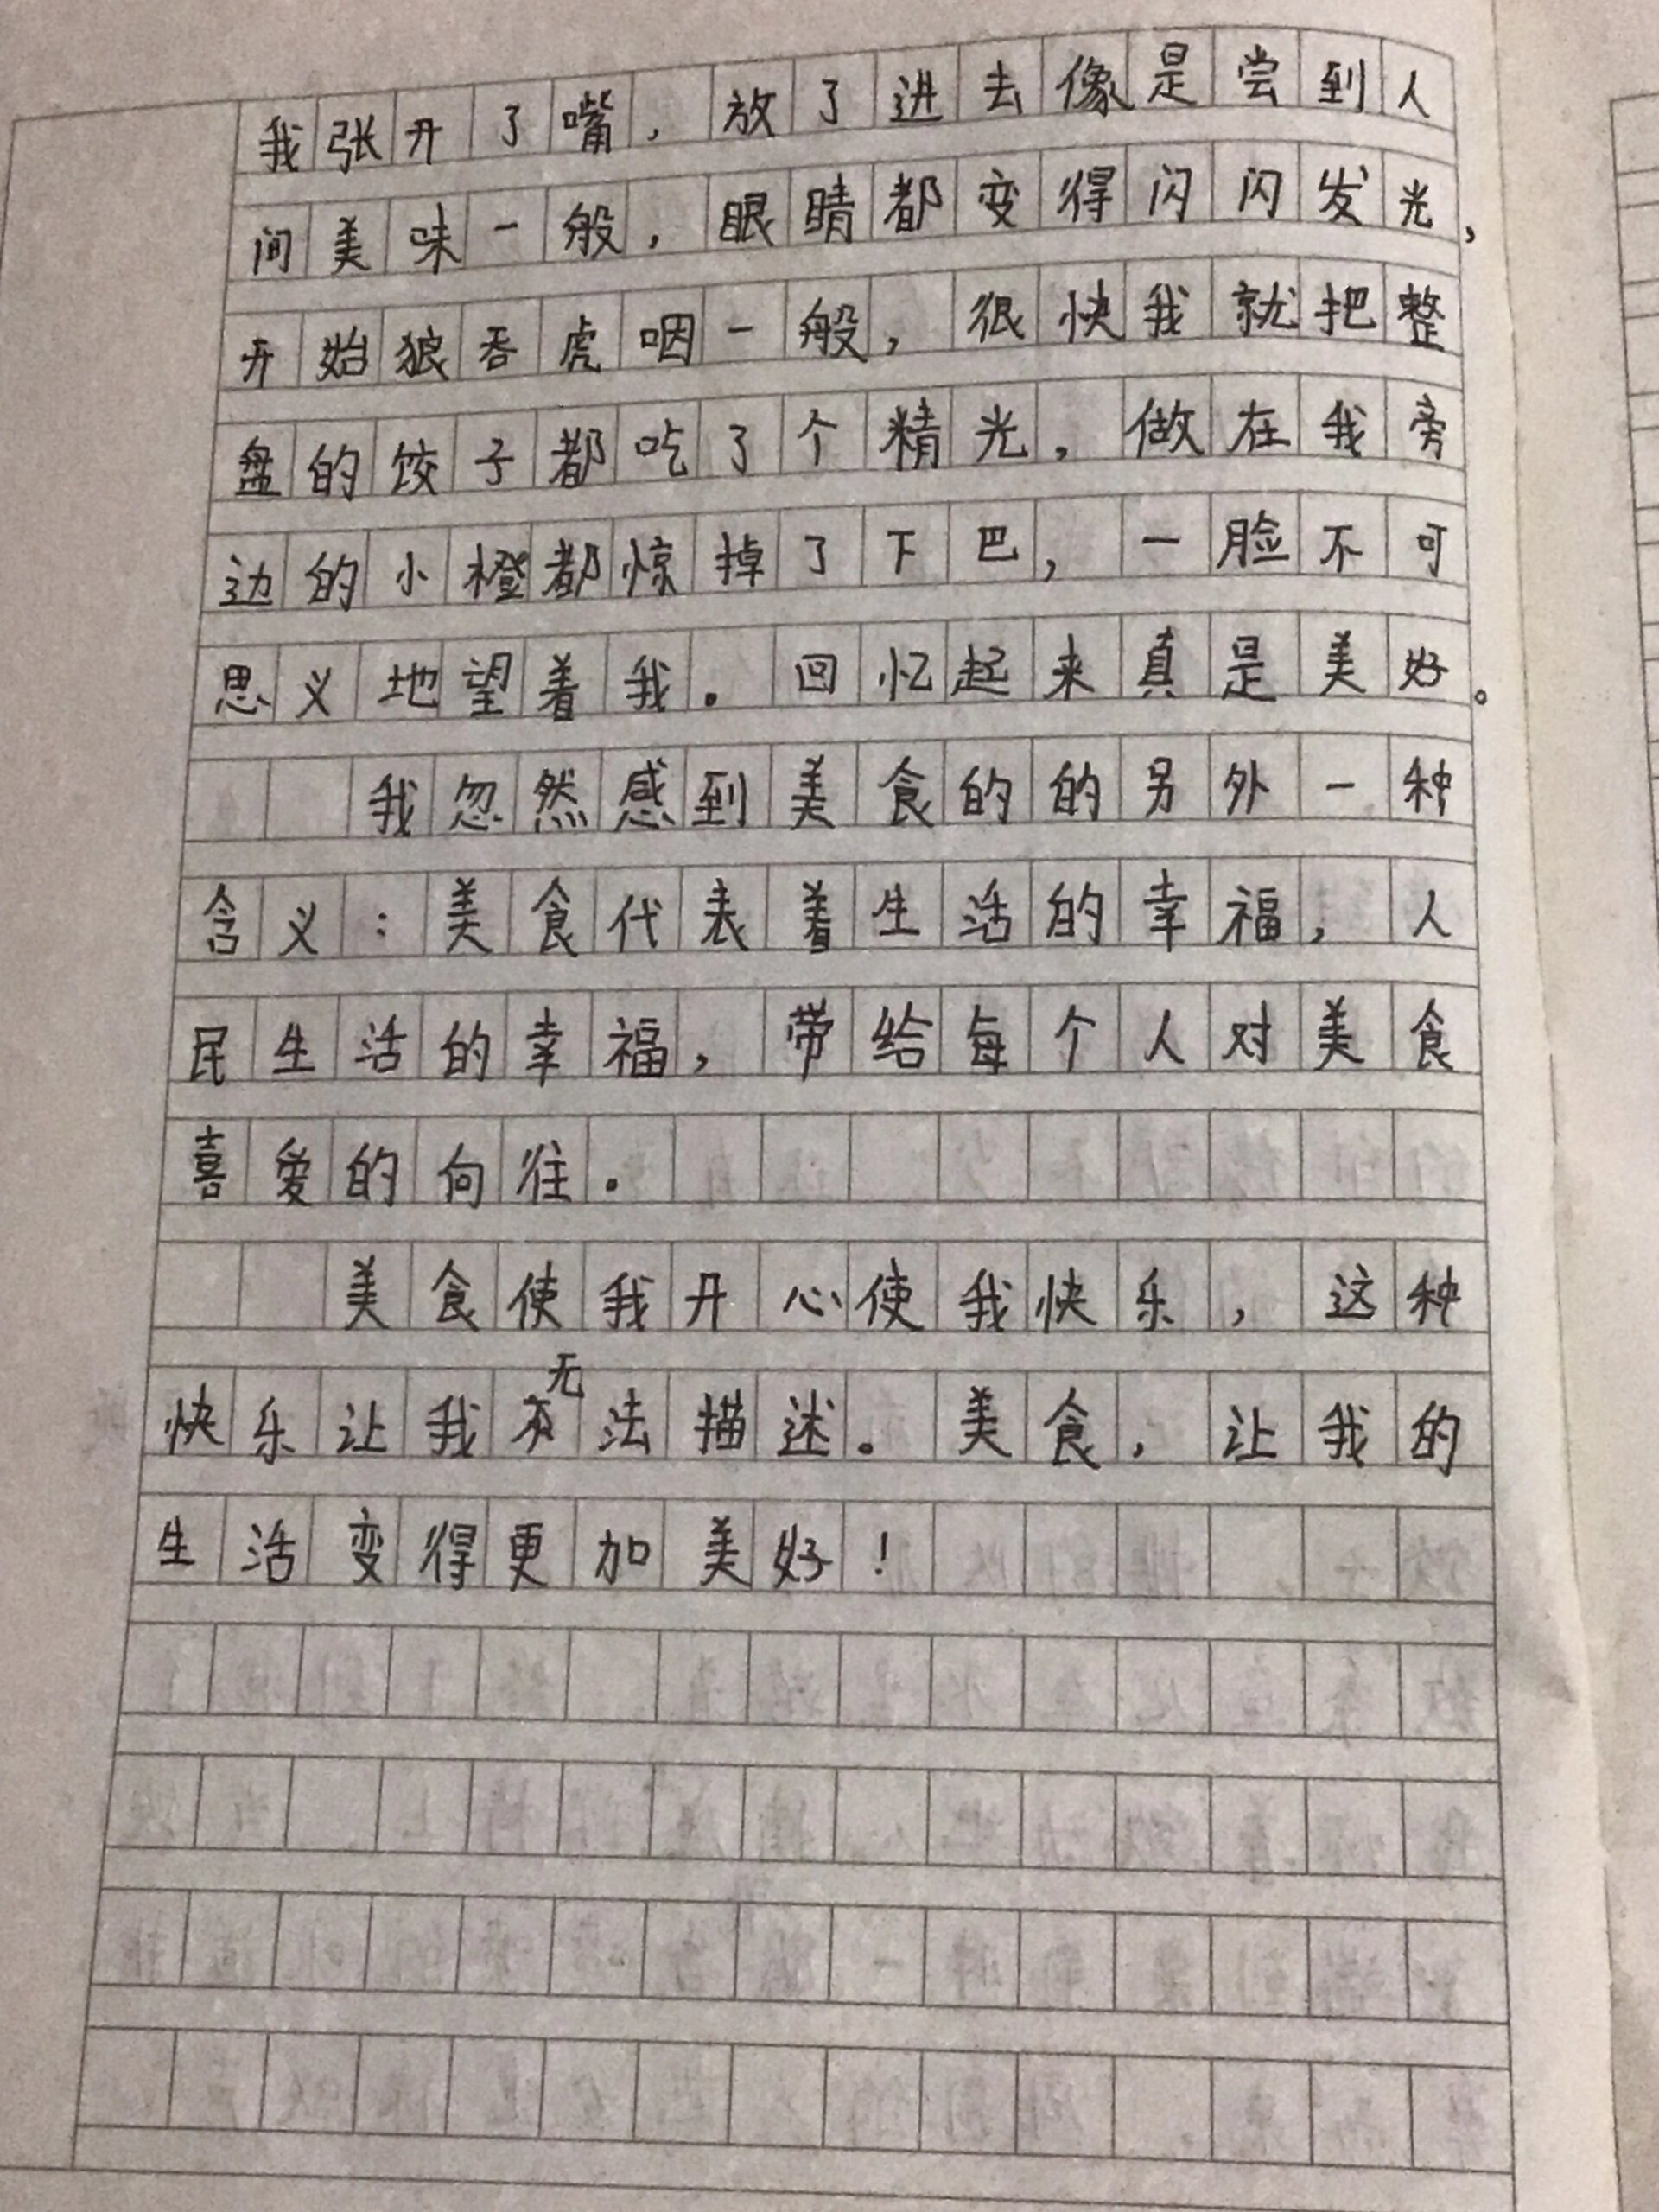 我张开了嘴，放了进去像是尝到人
间美味一般，眼睛都变得闪闪发光，
开始狼吞虎咽一般，很快我就把整
盘的饺子都吃了个精光，做在我旁
边的小橙都惊掉了下巴，一脸不可
思义地望着我。回忆起来真是美好。
我忽然感到美食的的另外一种
含义：美食代表着生活的幸福，人
民生活的幸福，带给每个人对美食
喜爱的向往。
美食使我开心使我快乐，这种
快乐让我无法描述。美食，让我的
生活变得更加美好！